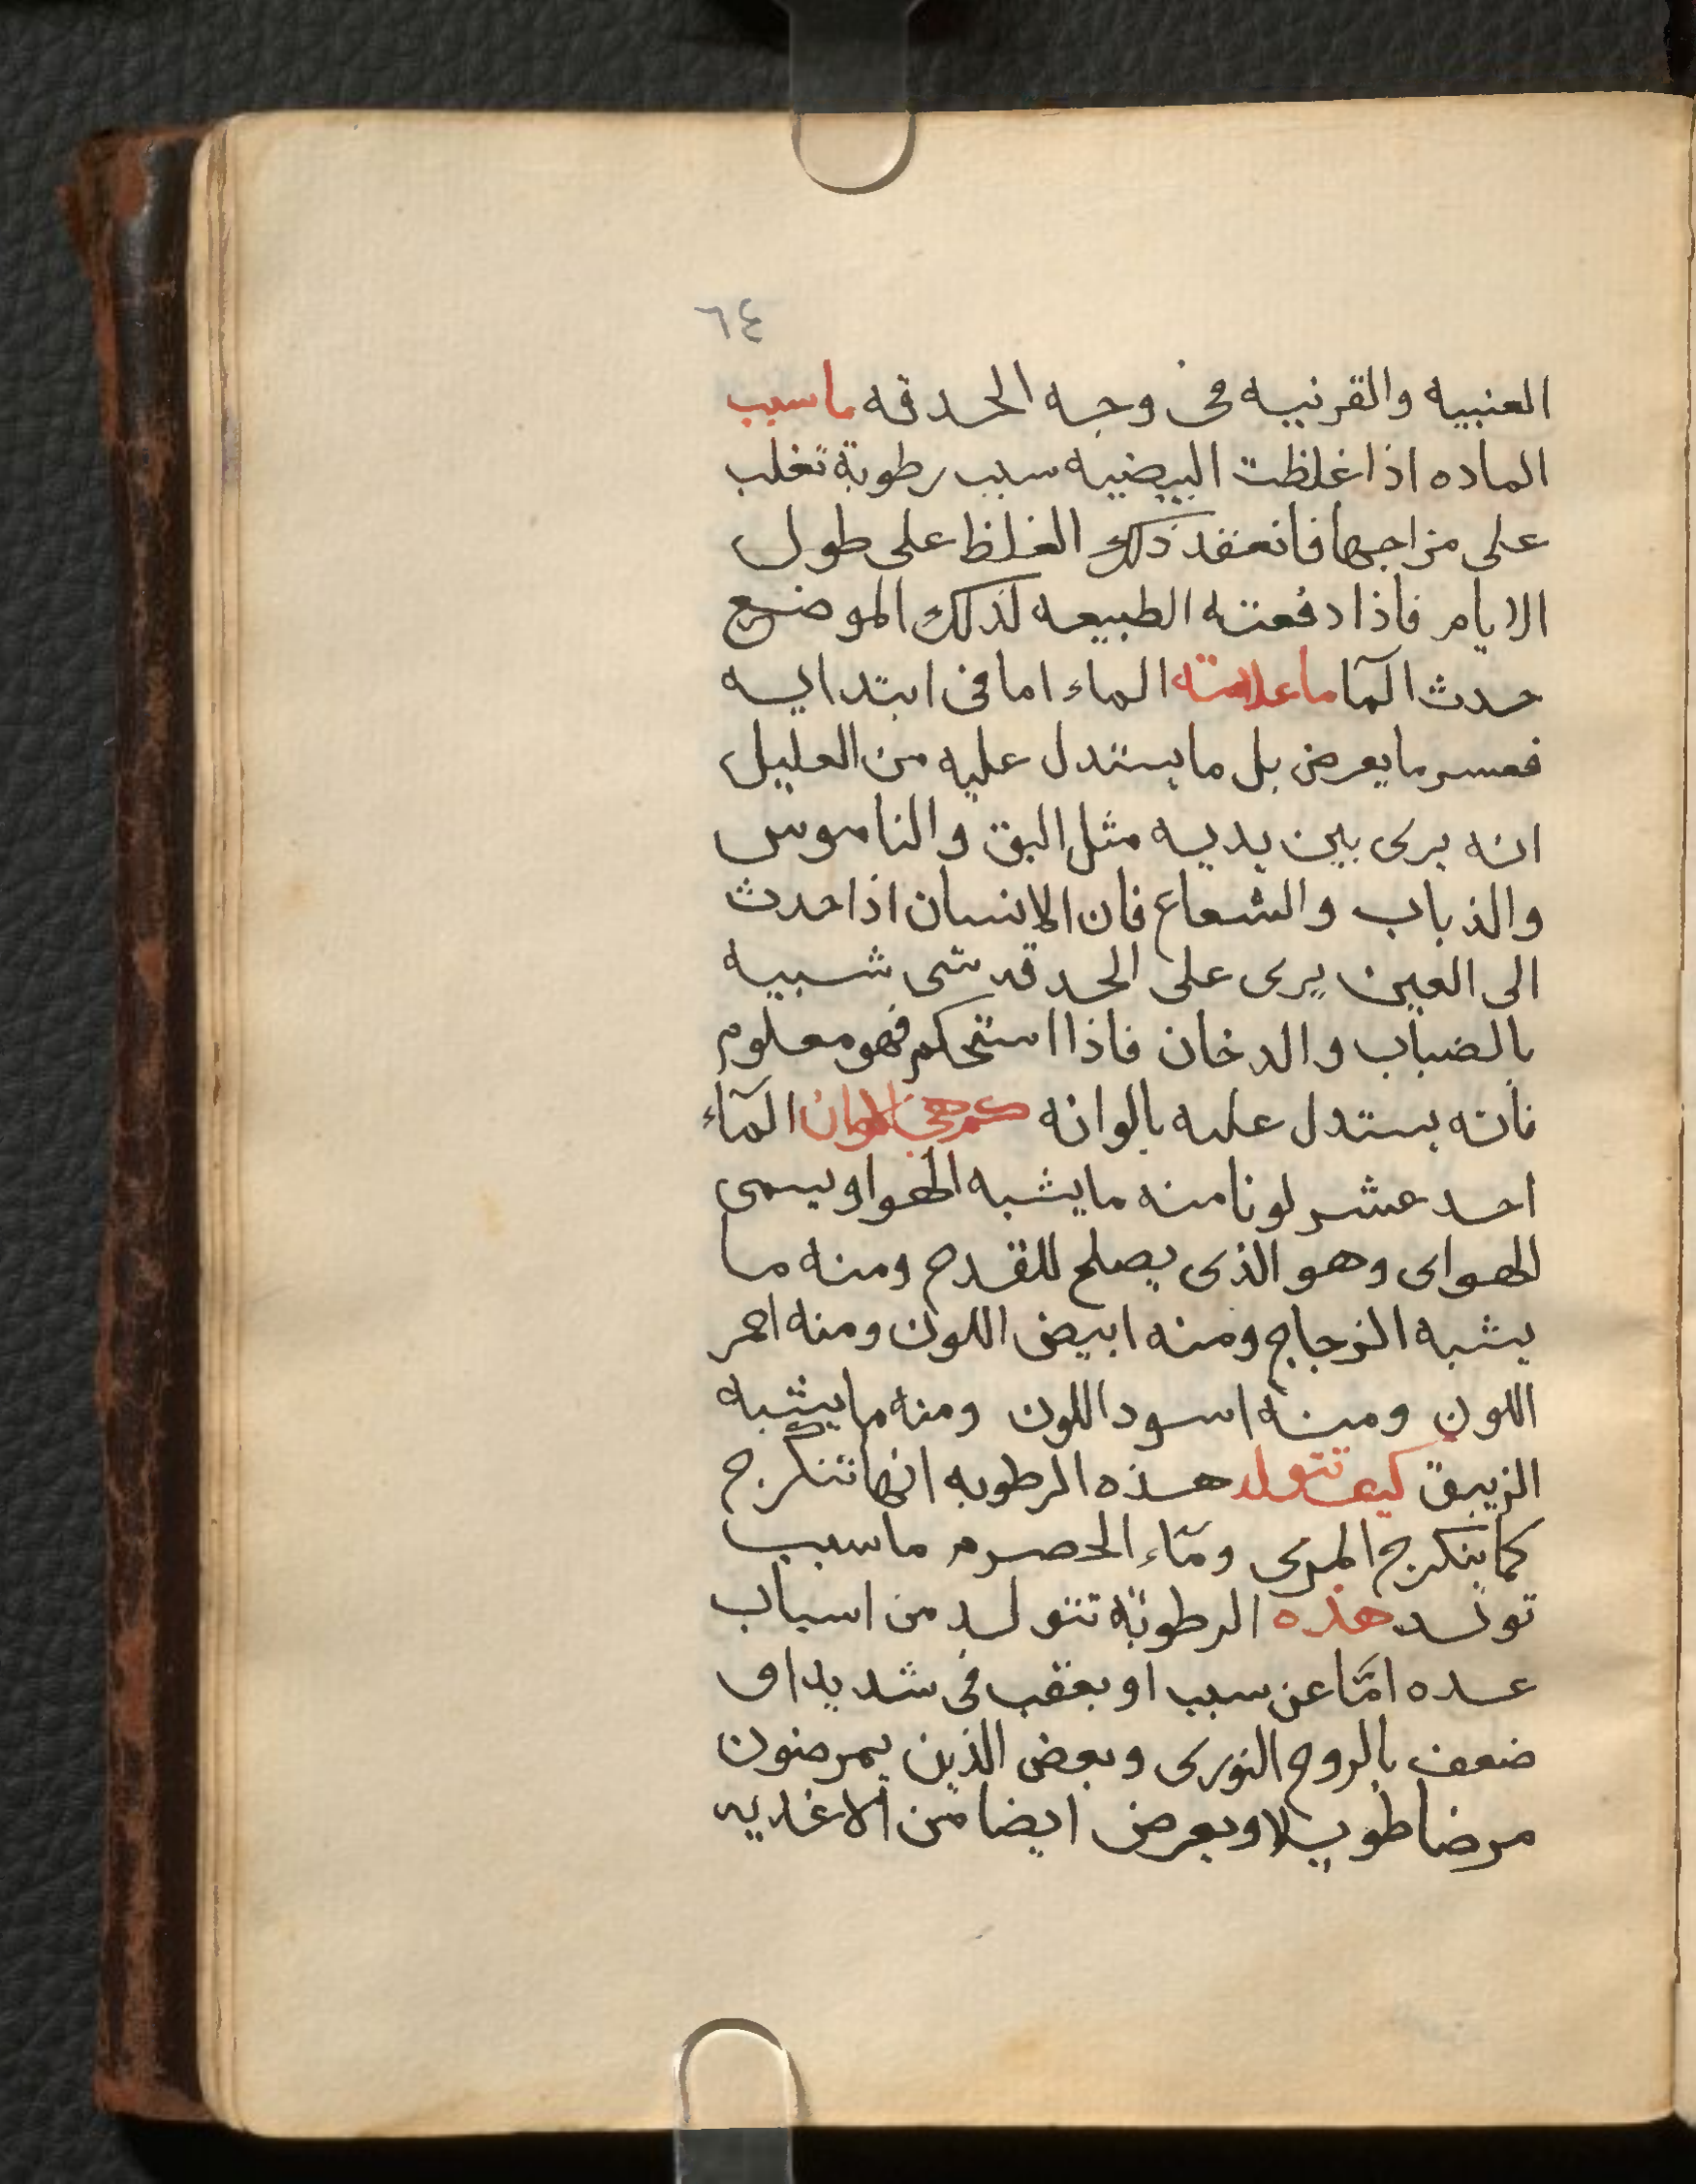 ٦٤
العنبيه والقرنيه فى وجه الحدقه ماسبب
الماده اذا غلظت البيضيه سبب رطوبة تغلب
على مزاجها فانعقد ذلك الغلظ على طول
الايام فاذا دفعته الطبيعه لذلك الموضع
حدث المآ ما علامته الماء اما فى ابتدايه
فعسر ما يعرض بل ما يستدل عليه من العليل
انه يرى بين يديه مثل البق والناموس
والذباب والشعاع فان الانسان اذا حدث
الى العين يرى على الحدقه شى شبيه
بالضباب والدخان فاذا استحكم فهو معلوم
فانه يستدل عليه بالوانه كم هى الوان المآء
احد عشر لونا منه ما يشبه الهوا ويسمى
الهواى وهو الذى يصلح للقدح ومنه ما
يشبه الزجاج ومنه ابيض اللون ومنه احمر
اللون ومنه اسود اللون ومنه ما يشبه
الزيبق كيف تتولد هذه الرطوبه انها تتكرج
كما يتكرج المرى ومآء الحصرم ما سبب
تولد هذه الرطوبة تتولد من اسباب
عده امّا عن سبب او بعقب فى شديد او
ضعف بالروح النورى وبعض الذين يمرضون
مرضا طويلا ويعرض ايضا من الاغديه